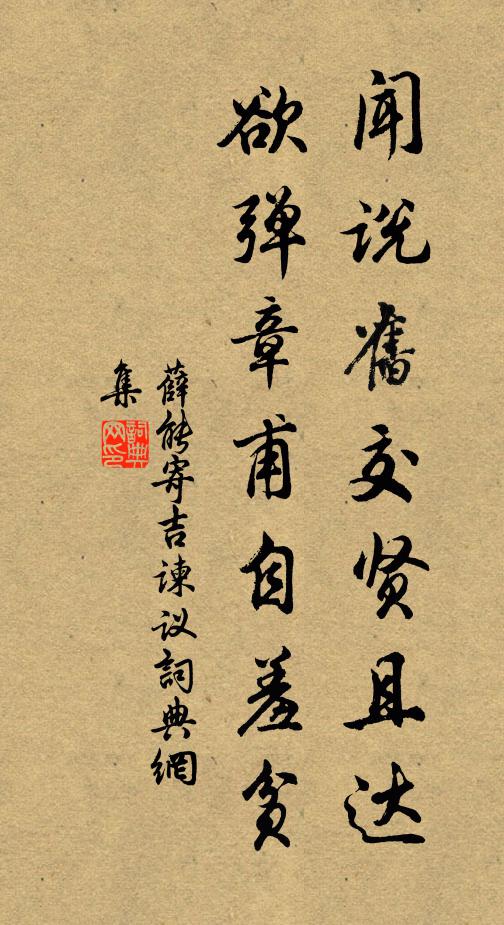 闻说旧交贤且达
欲弹章甫自羞贫
薛能寄吉谏议詞典網
集
詞典网印